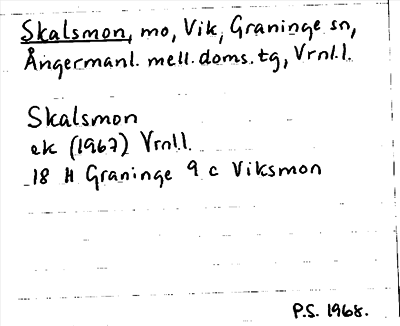 Skalsmon, mo, Vik, Graninge sn,
Ångermanl. mell. doms. tg, Vrnl.l.
Skalsmon
ek (1967) Vrnl.l.
18 H Graninge 9 c Viksmon
P.S. 1968.